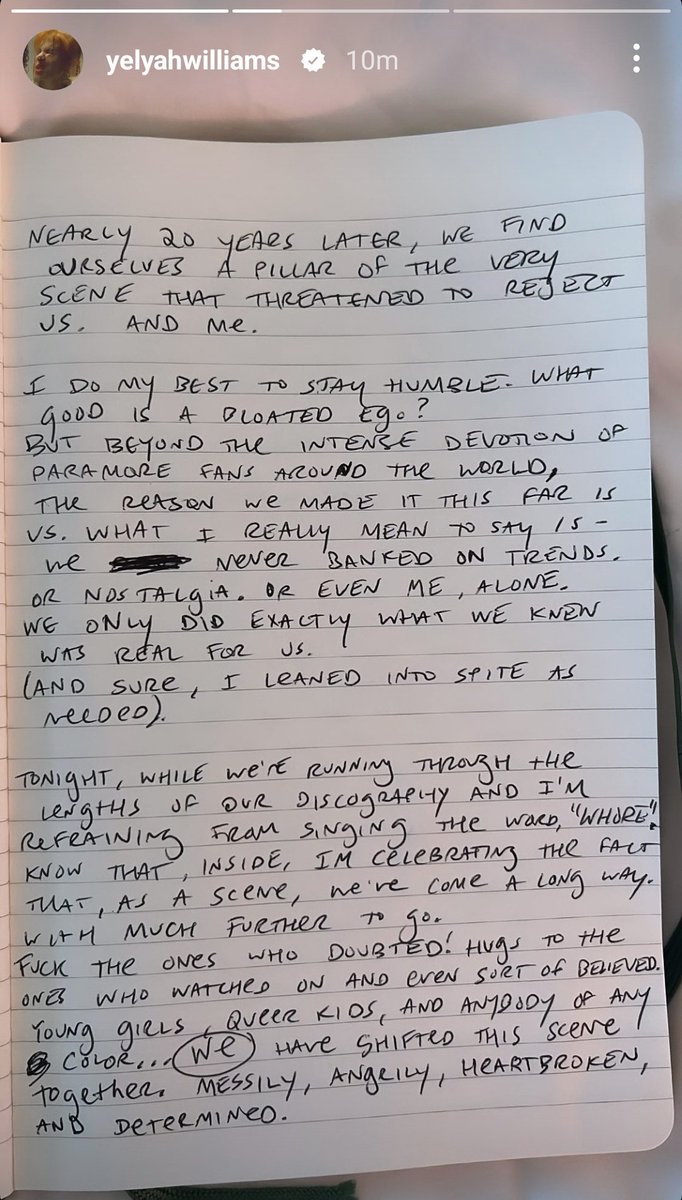 yelyahwilliams 10m
NEARLY 20 YEARS LATER, WE FIND
OURSELVES A PILLAR OF THE VERY
SCENE THAT THREATENED TO REJECT
US. AND ME.
I DO MY BEST TO STAY HUMBLE. WHAT
GOOD IS A BLOATED EGO?
BUT BEYOND THE INTENSE DEVOTION OF
PARAMORE FANS AROUND THE WORLD,
THE REASON WE MADE IT THIS FAR IS
US. WHAT I REALLY MEAN TO SAY IS -
WE NEVER BANKED ON TRENDS.
OR NOSTALGIA. OR EVEN ME, ALONE.
WE ONLY DID EXACTLY WHAT WE KNEW
WAS REAL FOR US.
(AND SURE, I LEANED INTO SPITE AS
NEEDED).
TONIGHT, WHILE WE'RE RUNNING THROUGH THE
LENGTHS OF OUR DISCOGRAPHY AND I'M
REFRAINING FROM SINGING THE WORD, "WHORE".
KNOW THAT, INSIDE, I'M CELEBRATING THE FACT
THAT, AS A SCENE, WE'VE COME A LONG WAY.
WITH MUCH FURTHER TO GO.
FUCK THE ONES WHO DOUBTED! HUGS TO THE
ONES WHO WATCHED ON AND EVEN SORT OF BELIEVED.
YOUNG GIRLS, QUEER KIDS, AND ANYBODY OF ANY
COLOR... WE HAVE SHIFTED THIS SCENE
TOGETHER. MESSILY, ANGRILY, HEARTBROKEN,
AND DETERMINED.